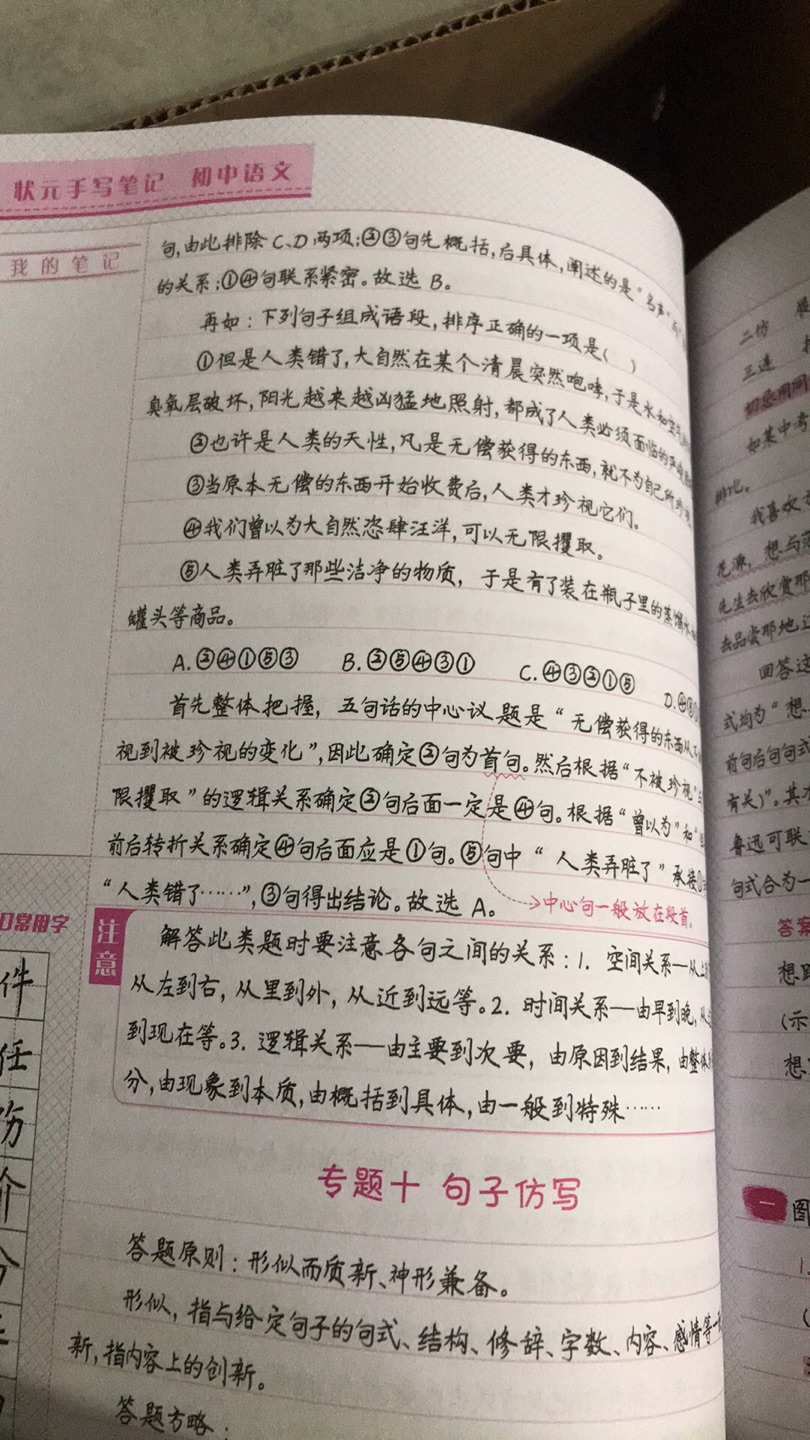 状元手写笔记 初中语文
我的笔记
句,由此排除C、D两项;②③句先概括,后具体,阐述的是“名声”
的关系;①④句联系紧密。故选 B。
再如:下列句子组成语段,排序正确的一项是( )
①但是人类错了,大自然在某个清晨突然咆哮,于是水和空气
臭氧层破坏,阳光越来越凶猛地照射,都成了人类必须面临的
②也许是人类的天性,凡是无偿获得的东西,就不为自己所珍视
③当原本无偿的东西开始收费后,人类才珍视它们。
④我们曾以为大自然恣肆汪洋,可以无限攫取。
⑤人类弄脏了那些洁净的物质,于是有了装在瓶子里的蒸馏水
罐头等商品。
A.②④①⑤③ B.②⑤④③① C.④③②①⑤ D.④
首先整体把握,五句话的中心议题是“无偿获得的东西从不
视到被珍视的变化”,因此确定②句为首句。然后根据“不被珍视”
限攫取”的逻辑关系确定②句后面一定是④句。根据“曾以为”和“
前后转折关系确定④句后面应是①句。⑤句中“人类弄脏了”承接①
“人类错了……”,③句得出结论。故选 A。
中心句一般放在段首。
注意
解答此类题时要注意各句之间的关系:1. 空间关系—从上
从左到右,从里到外,从近到远等。2. 时间关系—由早到晚,从
到现在等。3. 逻辑关系—由主要到次要,由原因到结果,由整体
分,由现象到本质,由概括到具体,由一般到特殊……
专题十 句子仿写
答题原则:形似而质新、神形兼备。
形似,指与给定句子的句式、结构、修辞、字数、内容、感情等一
新,指内容上的创新。
答题方略:
常用字
件
任
伤
价
二仿
三连
如某中考
排比。
我喜欢
先生去欣赏那
去品尝那地
回答这
式均为“想
前句后句句式
有关)”。其
鲁迅可联
句式合为一
答案
想
(示
想
一 图
1.